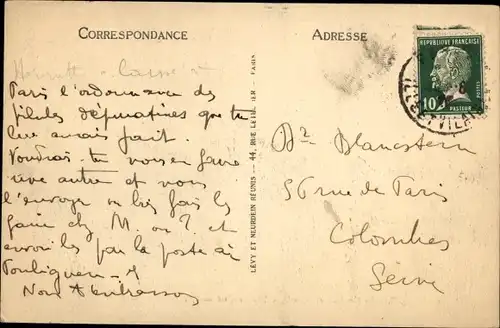 CORRESPONDANCE
ADRESSE
REPUBLIQUE FRANÇAISE
10
PASTEUR
POSTES
ILLE ET VILAINE
Paris l'ordonnance des
pilules dépuratives que tu
lui avais fait.
Voudrais-tu nous en faire
une autre et nous
l'envoyer ou bien fais les
faire chez M. et
envoie les par la poste au
Pouliguen
Nous t'embrassons
LÉVY ET NEURDEIN RÉUNIS - 44, RUE LETELLIER - PARIS
Dr Blancstern
56 rue de Paris
Colombes
Seine